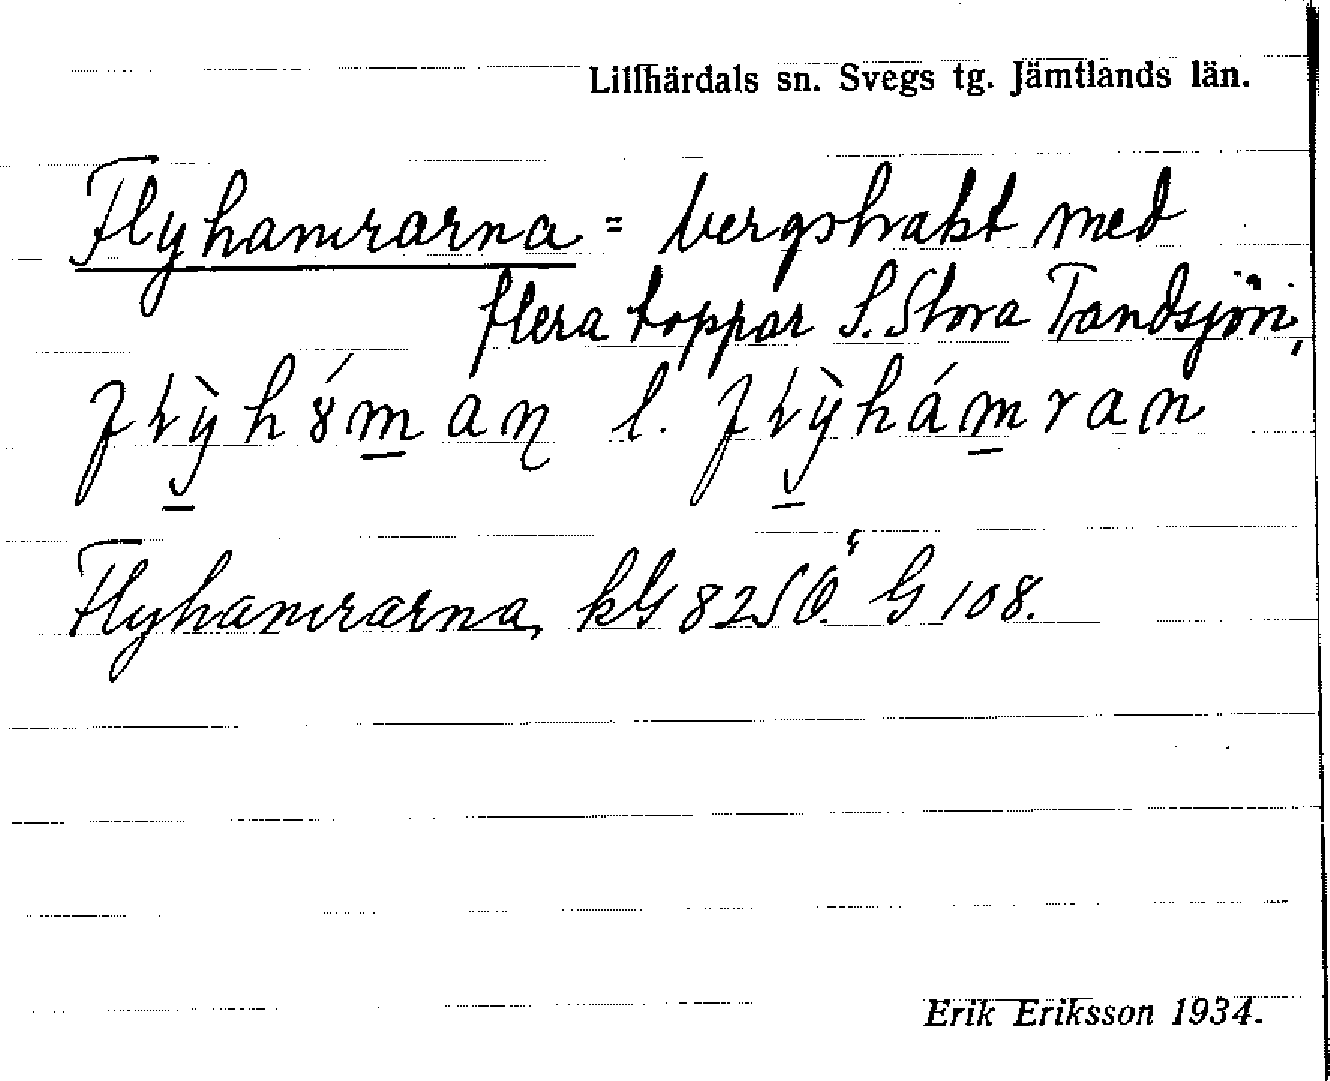 Lillhärdals sn. Svegs tg. Jämtlands län.
Flyhamrarna = bergstrakt med
flera toppar S. Stora Tandsjön,
l.
Flyhamrarna, kG 82SÖ. G 108.
Erik Eriksson 1934.